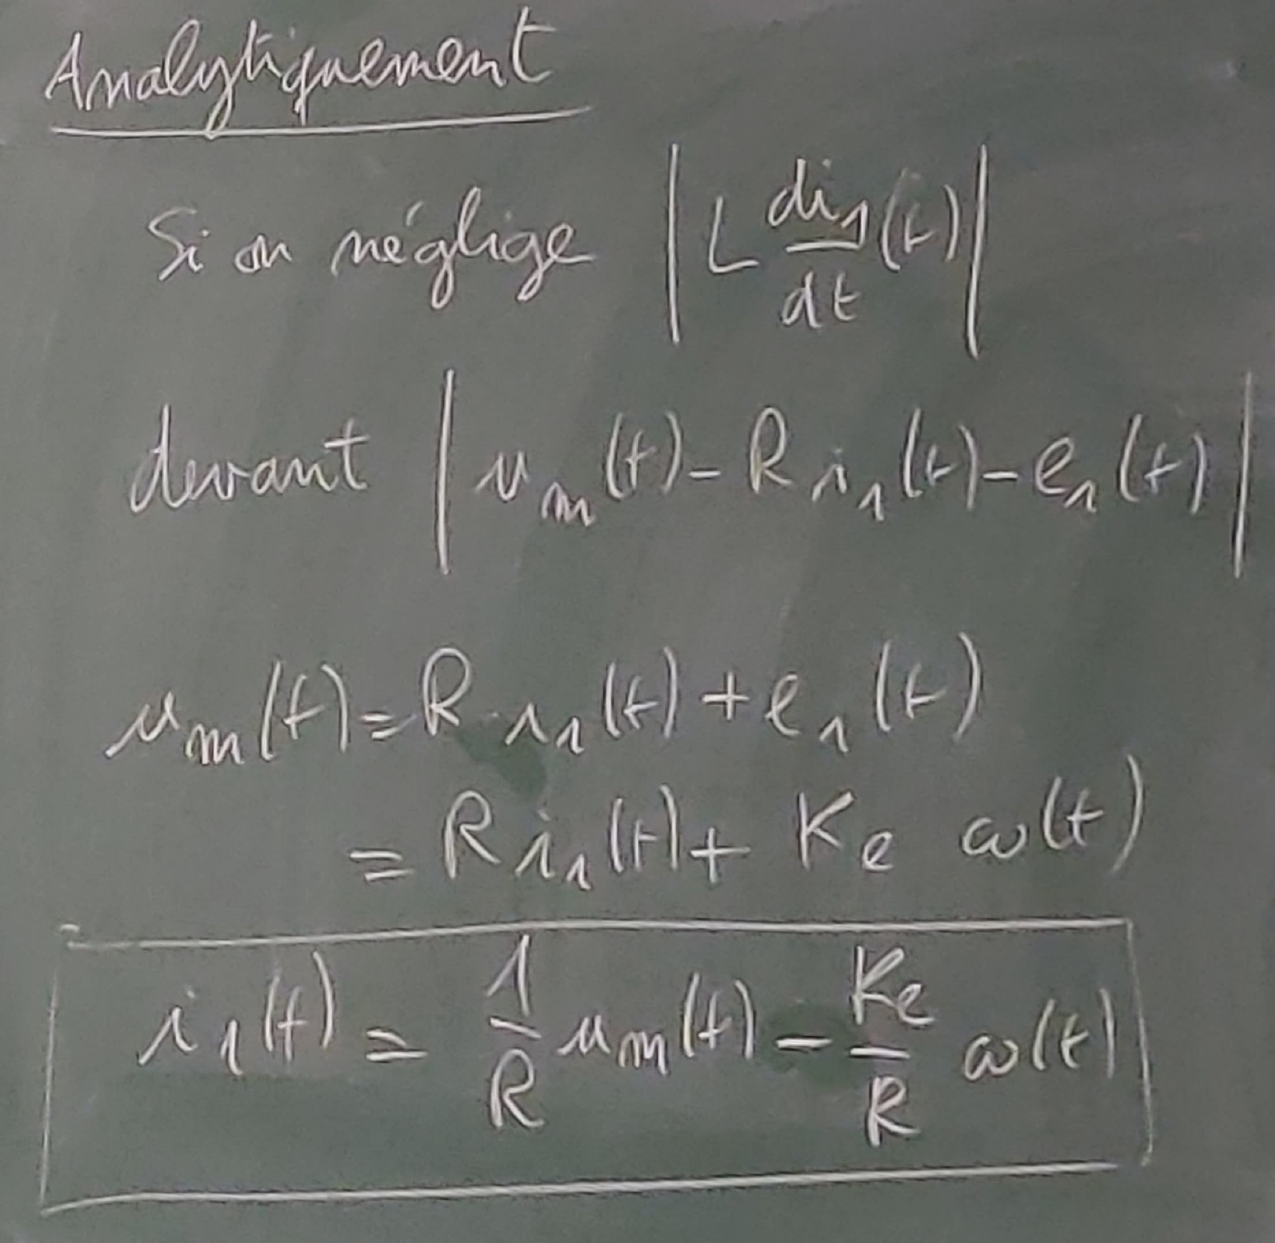 Analytiquement
Si on néglige |L di₁/dt (t)|
devant |u_m(t) - R i₁(t) - e₁(t)|
u_m(t) = R i₁(t) + e₁(t)
= R i₁(t) + Ke ω(t)
i₁(t) = 1/R u_m(t) - Ke/R ω(t)